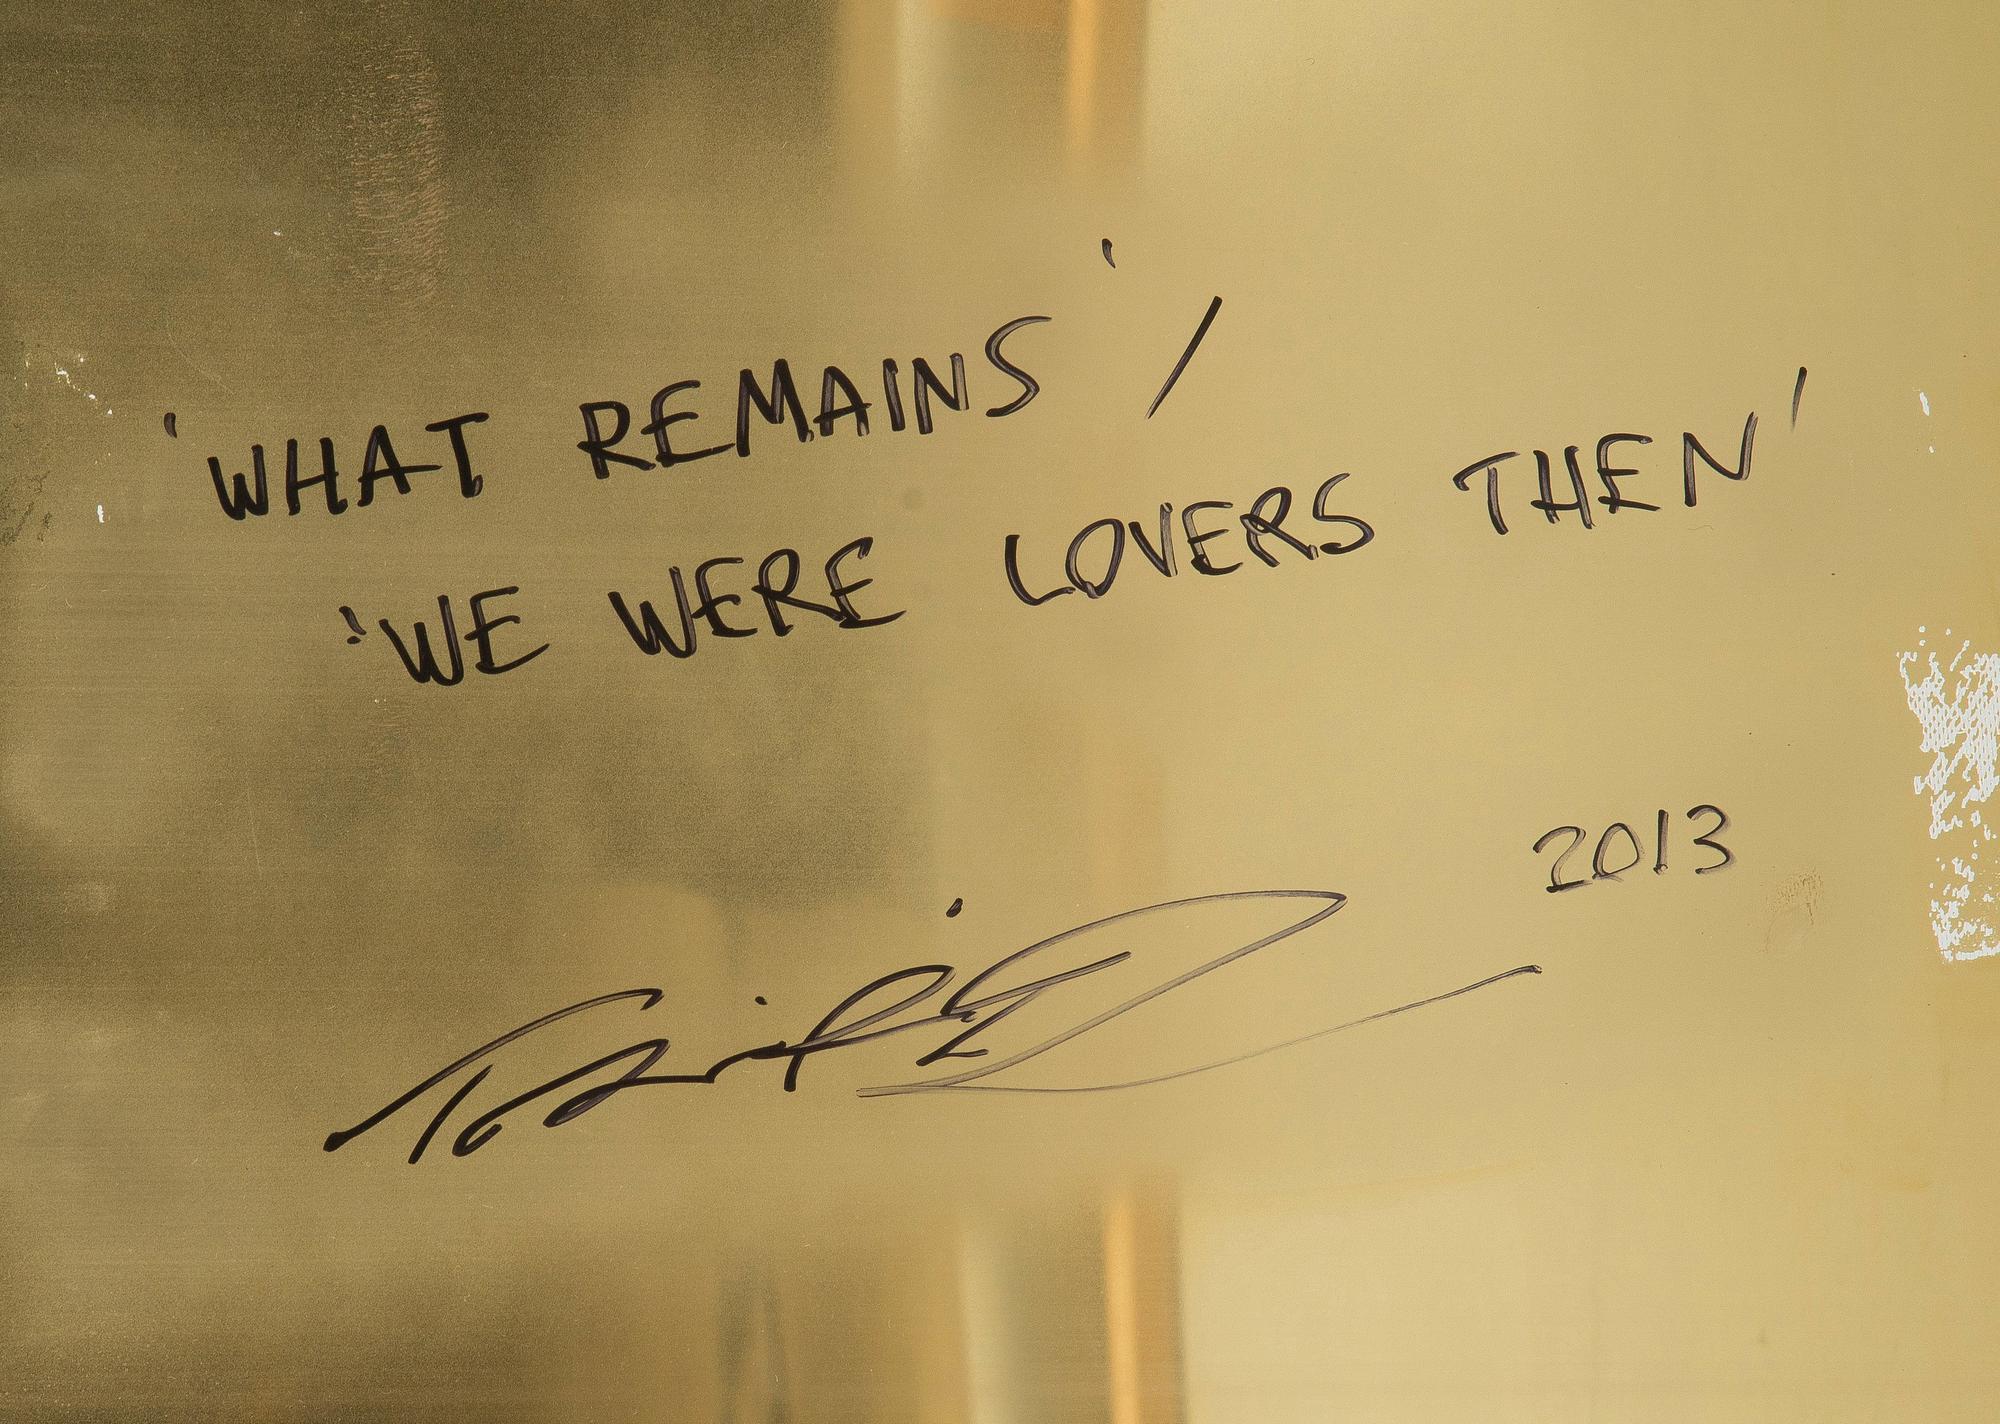 'WHAT REMAINS' /
'WE WERE LOVERS THEN'
2013